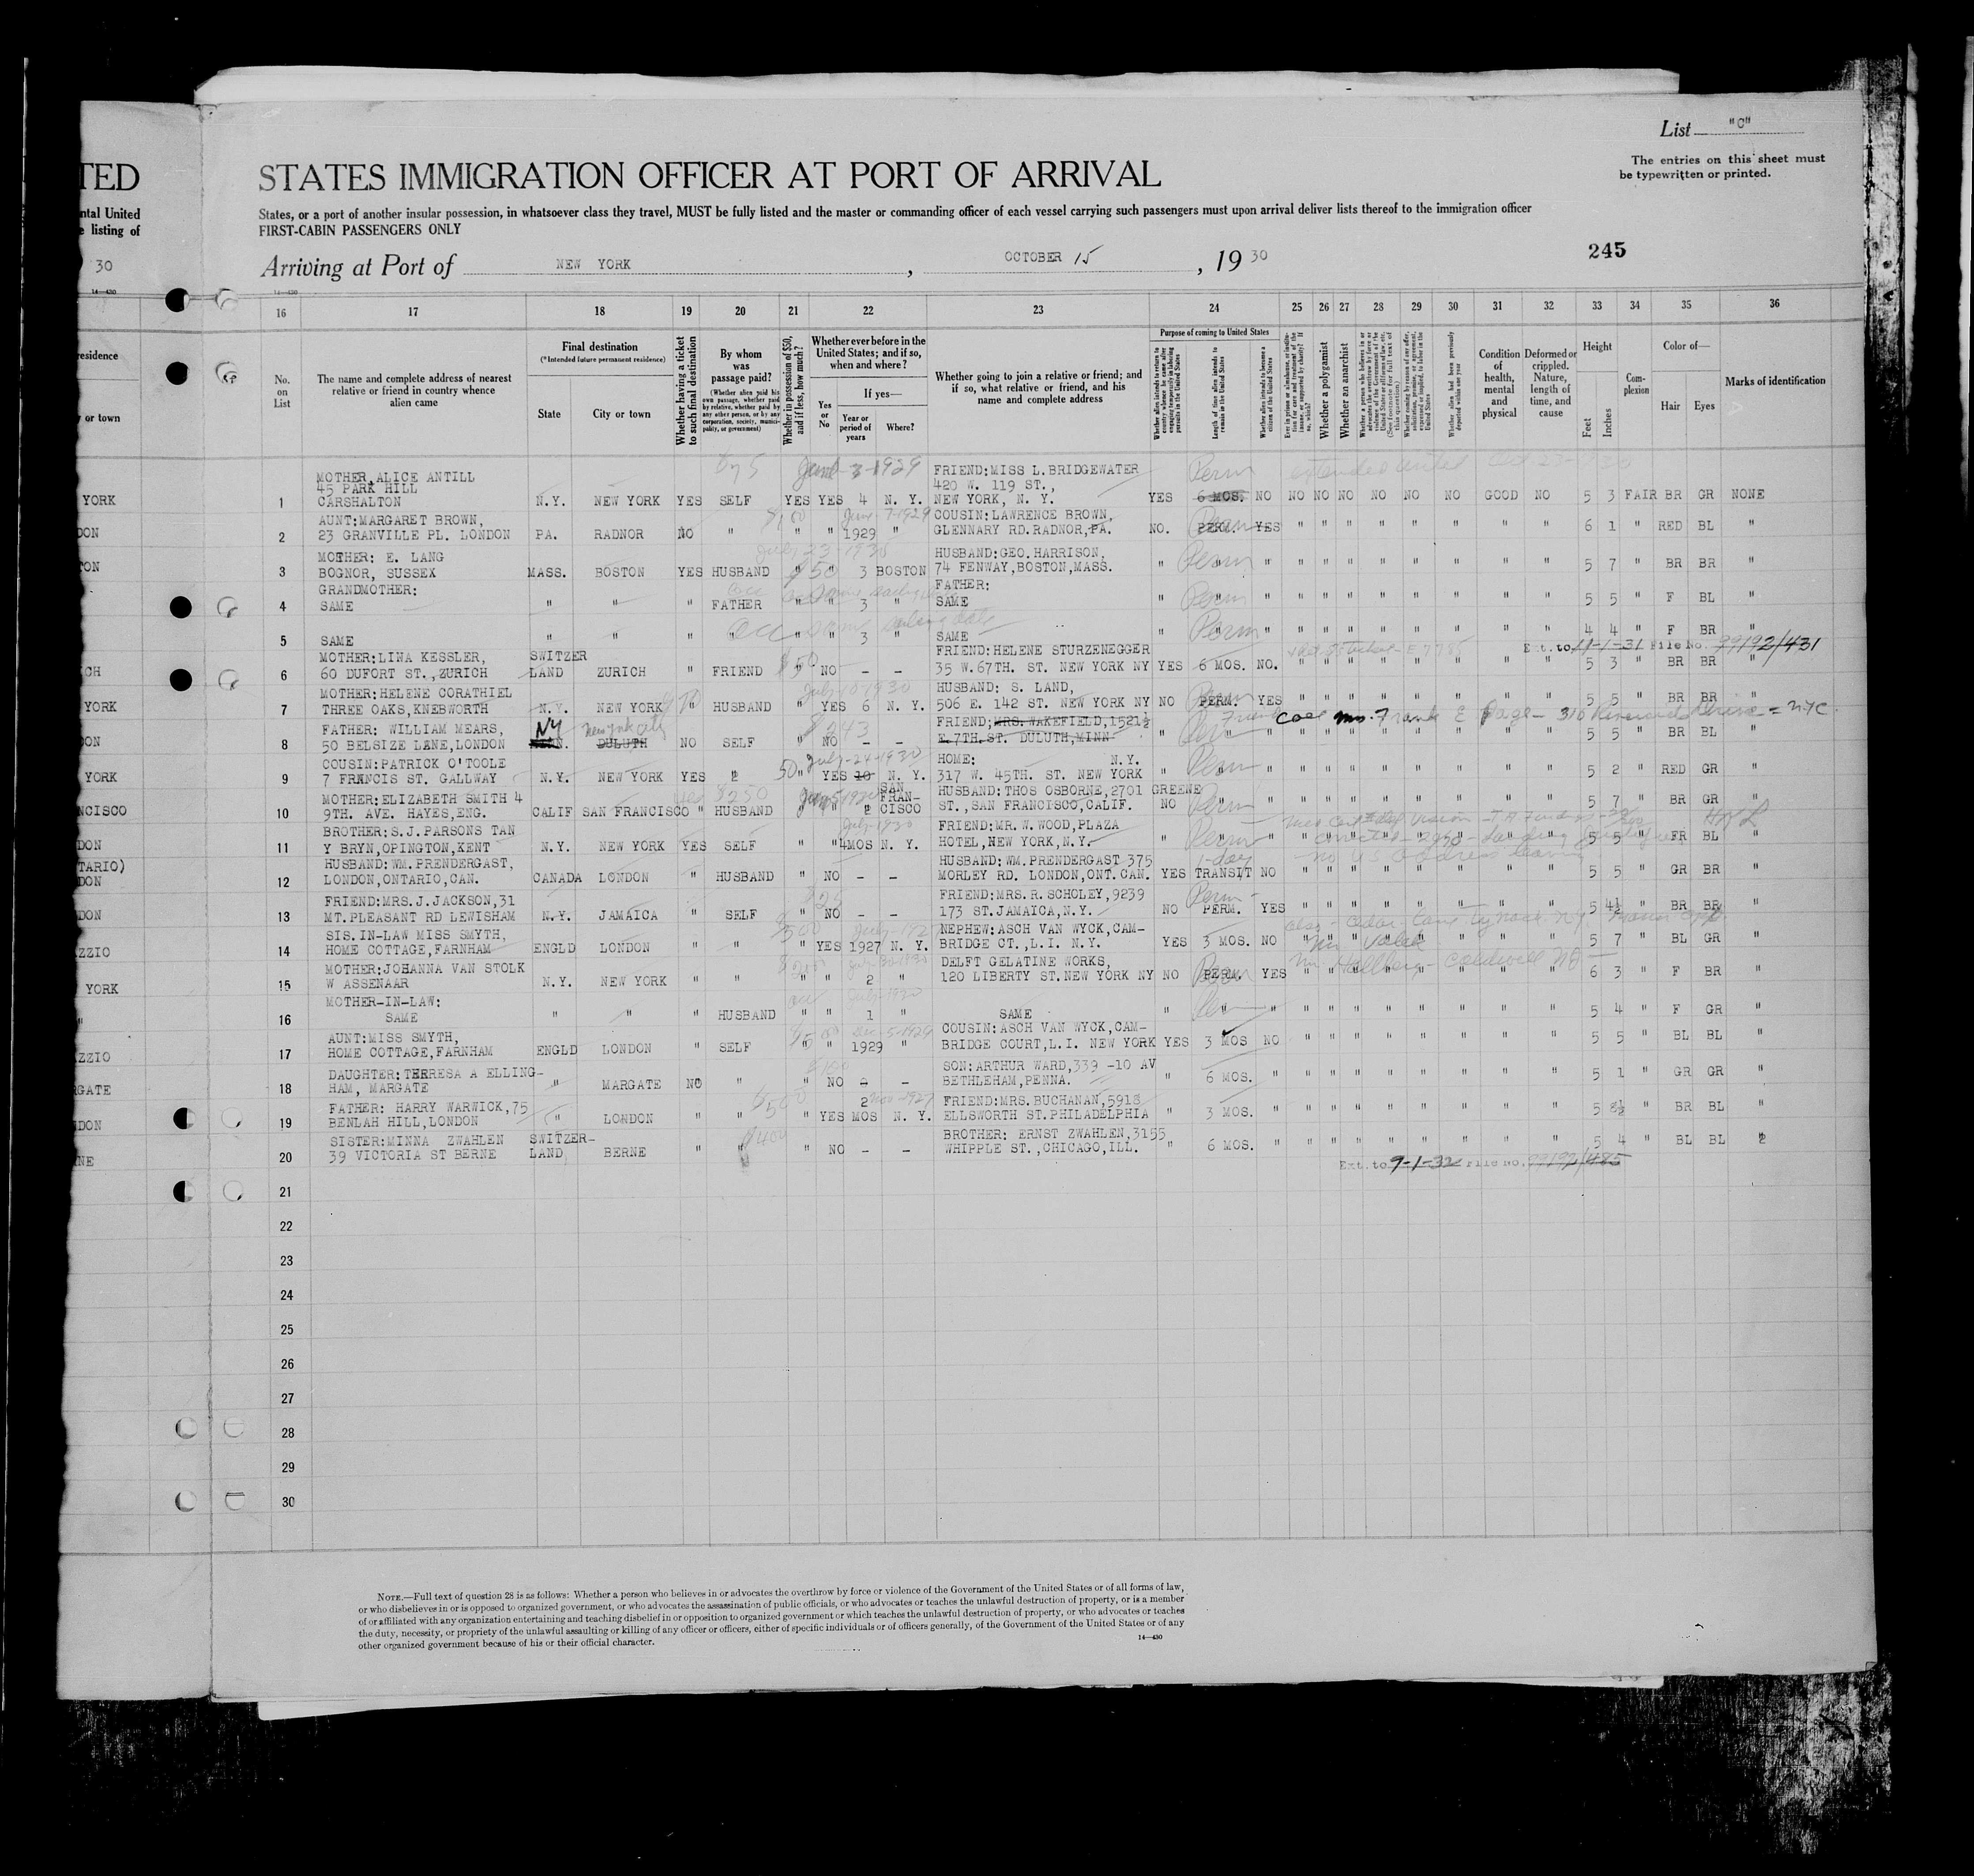 List "C"
The entries on this sheet must
be typewritten or printed.
TED
STATES IMMIGRATION OFFICER AT PORT OF ARRIVAL
ntal United
e listing of
States, or a port of another insular possession, in whatsoever class they travel, MUST be fully listed and the master or commanding officer of each vessel carrying such passengers must upon arrival deliver lists thereof to the immigration officer
FIRST-CABIN PASSENGERS ONLY
30
245
Arriving at Port of NEW YORK, OCTOBER 15, 1930
14—430
16 17 18 19 20 21 22 23 24 25 26 27 28 29 30 31 32 33 34 35 36
No. on List
The name and complete address of nearest relative or friend in country whence alien came
Final destination
(*Intended future permanent residence)
State
City or town
Whether having a ticket to such final destination
By whom was passage paid?
(Whether alien paid his own passage, whether paid by relative, whether paid by any other person, or by any corporation, society, municipality, or government)
Whether in possession of $50, and if less, how much?
Whether ever before in the United States; and if so, when and where?
If yes—
Yes or No
Year or period of years
Where?
Whether going to join a relative or friend; and if so, what relative or friend, and his name and complete address
Purpose of coming to United States
Length of time alien intends to remain in the United States
Whether alien intends to become a citizen of the United States
Whether a polygamist
Whether an anarchist
Whether alien had been previously deported within one year
Condition of health, mental and physical
Deformed or crippled. Nature, length of time, and cause
Height
Feet
Inches
Complexion
Color of—
Hair
Eyes
Marks of identification
residence
y or town
June-3-1929 Perm
YORK 1 MOTHER, ALICE ANTILL 45 PARK HILL CARSHALTON N.Y. NEW YORK YES SELF YES YES 4 N. Y. FRIEND:MISS L.BRIDGEWATER 420 W. 119 ST., NEW YORK, N. Y. YES 6 MOS. NO NO NO NO NO NO NO GOOD NO 5 3 FAIR BR GR NONE
DON 2 AUNT:MARGARET BROWN, 23 GRANVILLE PL. LONDON PA. RADNOR NO " " " 1929 COUSIN:LAWRENCE BROWN, GLENNARY RD.RADNOR,PA. NO. PERM. YES " " " " " " " " 6 1 " RED BL "
TON 3 MOTHER: E. LANG BOGNOR, SUSSEX MASS. BOSTON YES HUSBAND " " 3 BOSTON HUSBAND:GEO.HARRISON, 74 FENWAY,BOSTON,MASS. " Perm " " " " " " " " " 5 7 " BR BR "
4 GRANDMOTHER: SAME " " " FATHER " " 3 " FATHER: SAME " Perm " " " " " " " " " 5 5 " F BL "
5 SAME " " " " " " 3 " SAME " Perm " " " " " " " " " 4 4 " F BR "
Ext. to 11-1-31 File No. 99192/431
ICH 6 MOTHER:LINA KESSLER, 60 DUFORT ST.,ZURICH SWITZER LAND ZURICH " FRIEND " NO – – FRIEND:HELENE STURZENEGGER 35 W.67TH. ST. NEW YORK NY YES 6 MOS. NO. " " " " " " " " 5 3 " BR BR "
YORK 7 MOTHER:HELENE CORATHIEL THREE OAKS,KNEBWORTH N.Y. NEW YORK " HUSBAND " YES 6 N. Y. HUSBAND: S. LAND, 506 E. 142 ST. NEW YORK NY NO PERM. YES " " " " " " " " 5 5 " BR BR "
Friend Mrs. Frank E Page - 310 Riverside Drive = NYC
DON 8 FATHER: WILLIAM MEARS, 50 BELSIZE LANE,LONDON NY New York City DULUTH NO SELF " NO – – FRIEND:MRS. WAKEFIELD,1521½ E.7TH.ST. DULUTH,MINN " Perm " " " " " " " " " 5 5 " BR BL "
YORK 9 COUSIN:PATRICK O'TOOLE 7 FRANCIS ST. GALLWAY N.Y. NEW YORK YES " 50 " YES 10 N. Y. July-24-1930 HOME: N.Y. 317 W. 45TH. ST. NEW YORK " Perm " " " " " " " " " 5 2 " RED GR "
NCISCO 10 MOTHER:ELIZABETH SMITH 4 9TH. AVE. HAYES,ENG. CALIF SAN FRANCISCO " $250 HUSBAND " " 2 SAN FRAN- CISCO HUSBAND:THOS OSBORNE,2701 GREENE ST.,SAN FRANCISCO,CALIF. NO Perm " " " " " " " " " 5 7 " BR GR "
DON 11 BROTHER:S.J.PARSONS TAN Y BRYN,OPINGTON,KENT N.Y. NEW YORK YES SELF " " 4MOS N. Y. July-1930 FRIEND:MR. W. WOOD,PLAZA HOTEL,NEW YORK,N.Y. " Perm " " " " " " " " " 5 5 " FR BL "
TARIO) DON 12 HUSBAND:WM.PRENDERGAST, LONDON,ONTARIO,CAN. CANADA LONDON " HUSBAND " NO – – HUSBAND:WM.PRENDERGAST 375 MORLEY RD. LONDON,ONT.CAN. YES 1-day TRANSIT NO " " " " " " " " 5 5 " GR BR "
DON 13 FRIEND:MRS.J.JACKSON,31 MT.PLEASANT RD LEWISHAM N.Y. JAMAICA " SELF " NO – – FRIEND:MRS.R.SCHOLEY,9239 173 ST.JAMAICA,N.Y. NO PERM. YES " " " " " " " " 5 4½ " BR BR "
ZZIO 14 SIS.IN-LAW MISS SMYTH, HOME COTTAGE,FARNHAM ENGLD LONDON " " " YES 1927 N. Y. NEPHEW:ASCH VAN WYCK,CAM- BRIDGE CT.,L.I. N.Y. YES 3 MOS. NO " " " " " " " " 5 7 " BL GR "
YORK 15 MOTHER:JOHANNA VAN STOLK W ASSENAAR N.Y. NEW YORK " " " " 2 " DELFT GELATINE WORKS, 120 LIBERTY ST.NEW YORK NY NO PERM. YES " " " " " " " " 6 3 " F BR "
" 16 MOTHER-IN-LAW: SAME " " " HUSBAND " " 1 " SAME " " " " " " " " " " " 5 4 " F GR "
ZZIO 17 AUNT:MISS SMYTH, HOME COTTAGE,FARNHAM ENGLD LONDON " SELF " " 1929 " Dec-5-1929 COUSIN:ASCH VAN WYCK,CAM- BRIDGE COURT,L.I. NEW YORK YES 3 MOS NO " " " " " " " " 5 5 " BL BL "
RGATE 18 DAUGHTER:THERESA A ELLING- HAM, MARGATE " MARGATE NO " " NO – – SON:ARTHUR WARD,339 -10 AV BETHLEHAM,PENNA. " 6 MOS. " " " " " " " " " 5 1 " GR GR "
NDON 19 FATHER: HARRY WARWICK,75 BENLAH HILL,LONDON " LONDON " " " YES 2 MOS N. Y. FRIEND:MRS.BUCHANAN,5918 ELLSWORTH ST.PHILADELPHIA " 3 MOS. " " " " " " " " " 5 8½ " BR BL "
NE 20 SISTER:MINNA ZWAHLEN 39 VICTORIA ST BERNE SWITZER- LAND BERNE " " " NO – – BROTHER: ERNST ZWAHLEN,3155 WHIPPLE ST.,CHICAGO,ILL. " 6 MOS. " " " " " " " " " 5 4 " BL BL "
Ext. to 9-1-32 File No. 99192/485
21
22
23
24
25
26
27
28
29
30
NOTE.—Full text of question 28 is as follows: Whether a person who believes in or advocates the overthrow by force or violence of the Government of the United States or of all forms of law,
or who disbelieves in or is opposed to organized government, or who advocates the assassination of public officials, or who advocates or teaches the unlawful destruction of property, or is a member
of or affiliated with any organization entertaining and teaching disbelief in or opposition to organized government or which teaches the unlawful destruction of property, or who advocates or teaches
the duty, necessity, or propriety of the unlawful assaulting or killing of any officer or officers, either of specific individuals or of officers generally, of the Government of the United States or of any
other organized government because of his or their official character.
14—430